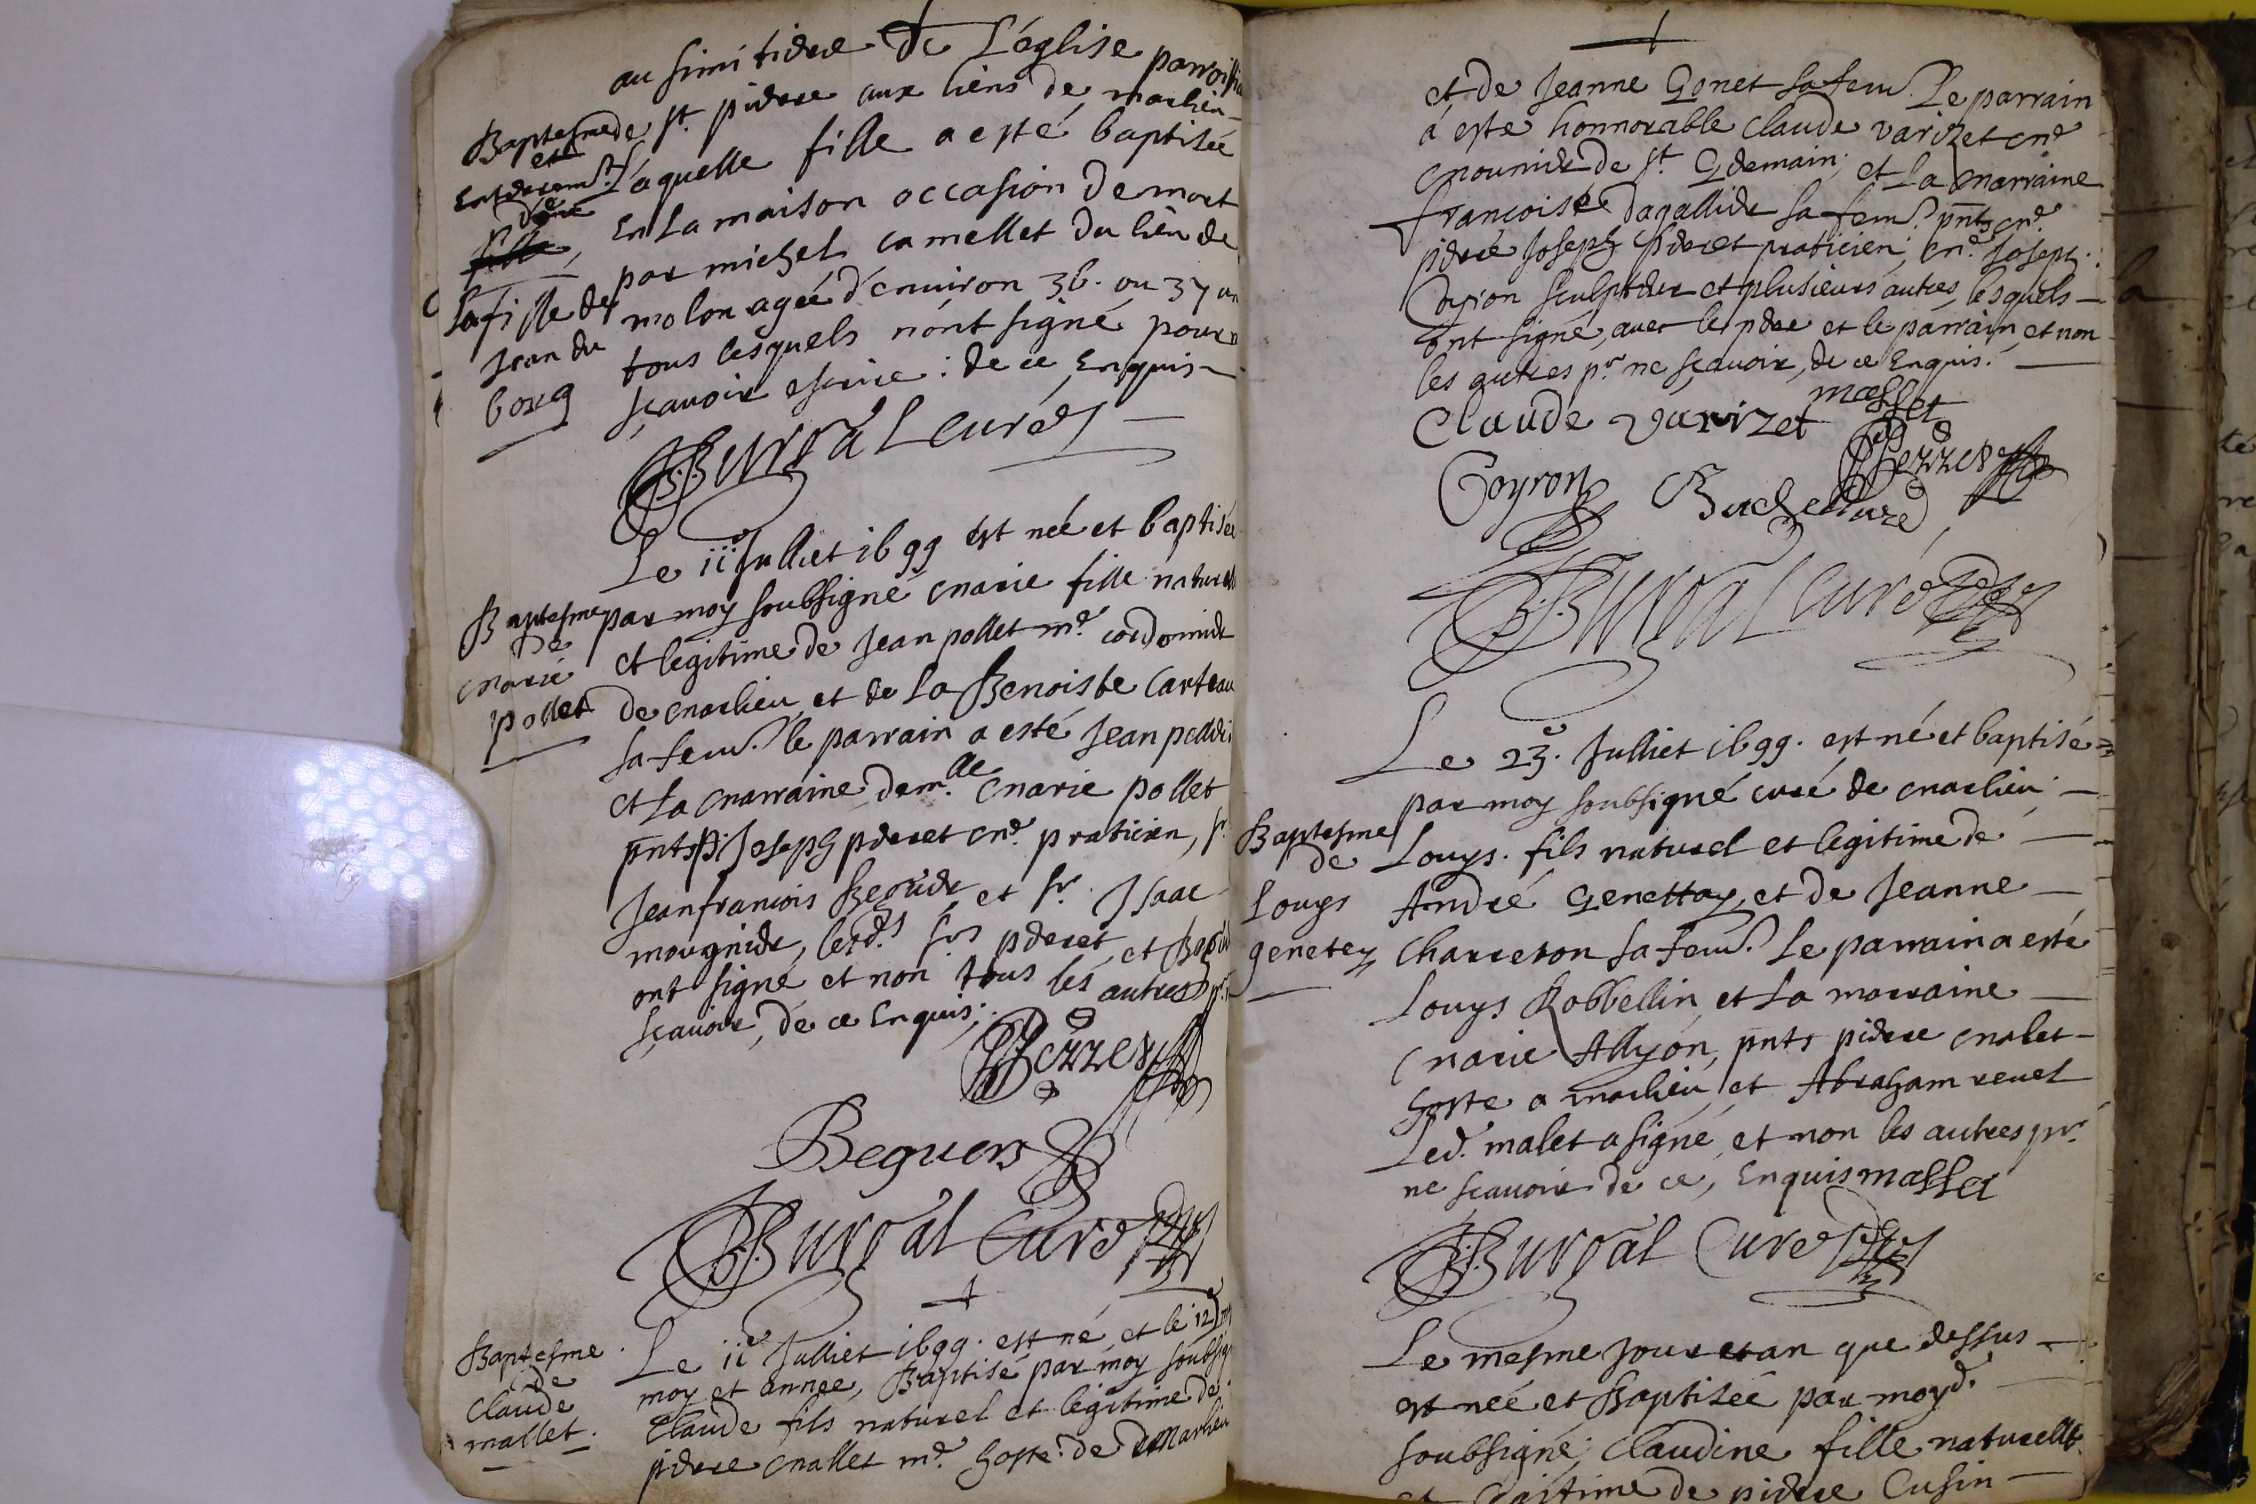 au simitiere de L'église parroissia
de st. pierre aux liens de marlieu
Laquelle fille a esté baptisée
En La maison occasion de mort
par michel camellet du lieu de
molon agée d'environ 36. ou 37 an
tous lesquels n'ont signé pour n
sçavoir escrire : de ce Enquis
Baptesme
et
Enterremt.
d'une
fille
La fille de
Jean du
bourg
B. Burdal curé
Le 11e Julliet 1699 est née et baptisée
par moy soubsigné marie fille naturel
et legitime de Jean pollet me. cordonnier
de marlieu et de La Benoiste Carteau
sa fem. le parrain a esté Jean
et La marraine demlle. marie pollet
pnts Joseph pierret me. praticien, sr.
Jean francois Beguer et sr. Isaac
mougnier, lesds. srs pierret et
ont signé et non tous les autres pr. n
sçavoir, de ce Enquis;
Baptesme
de
marie
pollet
Beguers
B. Burdal Curé
Le 11e Julliet 1699. est né et le 12
moy et année, Baptisé par moy soubsig
Claude fils naturel et legitime de
pierre mallet me. hoste de marlieu
Baptesme
de
Claude
mallet.
et de Jeanne Gonet sa fem. Le parrain
a esté honnorable Claude varizet me
de st. Germain; et La marraine
francoise dagallier sa fem. pnts me.
pierre Joseph pierret praticien; me. Joseph
Coyron sculpteur et plusieurs autres lesquels
ont signé, avec le pere et le parrain, et non
les autres pr. ne sçavoir, de ce Enquis.
Claude varizet masset
Coyron
B. Burdal curé
Le 23e. Julliet 1699. est né et baptisé
par moy soubsigné curé de marlieu
Louys. fils naturel et legitime de
André Genettoy, et de Jeanne
Charreton sa fem. Le parrain a esté
Louys Robbellin, et La marraine
marie Allyon, pnts pierre malet
hoste a marlieu, et Abraham revel
Led. malet a signé, et non les autres pr.
ne sçavoir de ce, Enquis massa
Baptesme
de
Louys
genetey
B. Burdal Curé
Le mesme jour et an que dessus
est née et Baptisée par moyd.
soubsigné; Claudine fille naturelle
et legitime de pierre Cusin